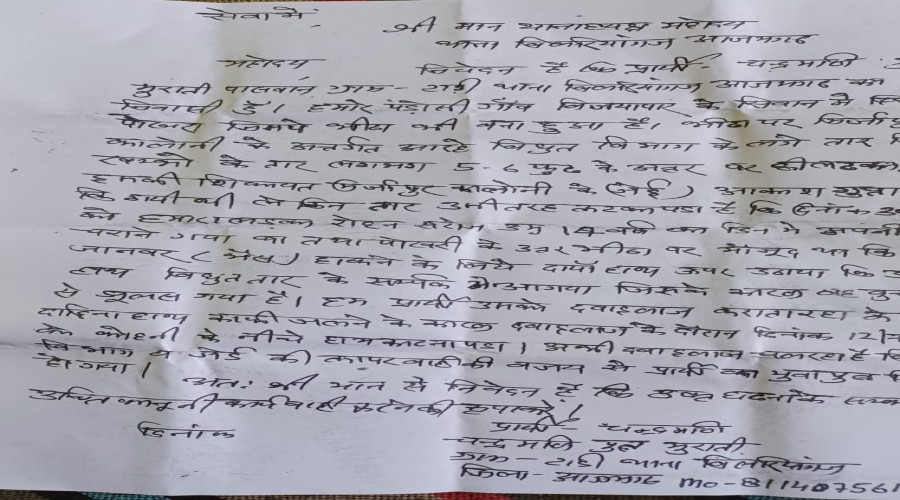 सेवा में
श्री मान थानाध्यक्ष महोदय
थाना बिलरियागंज आजमगढ़
महोदय निवेदन है कि प्रार्थी - चन्द्रमणि
मुराती पासवान ग्राम - थाना बिलरियागंज आजमगढ़ का
निवासी हूँ। हमारे पड़ोसी गाँव विजयापार के सिवान में
पोखरा जिसपे भीटा भी बना हुआ है। भीटा पर
कालोनी के अन्तर्गत आरहे विधुत विभाग के लगे तार
के तार लगभग 5 6 फुट के अन्तर पर
इसकी शिकायत कालोनी के (जेई) आकाश गुप्ता
कि गयी थी लेकिन तार उसी तरह लटका पड़ा है कि दिनांक
को हमारा लड़का रोहन सरोज उम्र 14 वर्ष का दिन में अपनी
चराने गया था तथा पोखरी के उत्तर भीटा पर मौजूद था कि
जानवर (भैंस) हाकने के लिये दायाँ हाथ ऊपर उठाया कि
हाथ विधुत तार के सम्पर्क में आगया जिसके कारण वह
से झुलस गया है। हम प्रार्थी उसके दवा इलाज करातारहा के
दाहिना हाथ काफी जलने के कारण दवा इलाज के दौरान दिनांक 12/
के कोहनी के नीचे हाथ काटना पड़ा। अभी दवा इलाज चल रहा है
विभाग व जेई की लापरवाही की वजय से प्रार्थी का
हो गया।
अतः श्री मान से निवेदन है कि उक्त घटना के
उचित कानूनी कार्यवाही करने की कृपा करें।
दिनांक प्रार्थी - चन्द्रमणि
चन्द्रमणि पुत्र मुराती
ग्राम - थाना बिलरियागंज
जिला - आजमगढ़ mo - 811407561